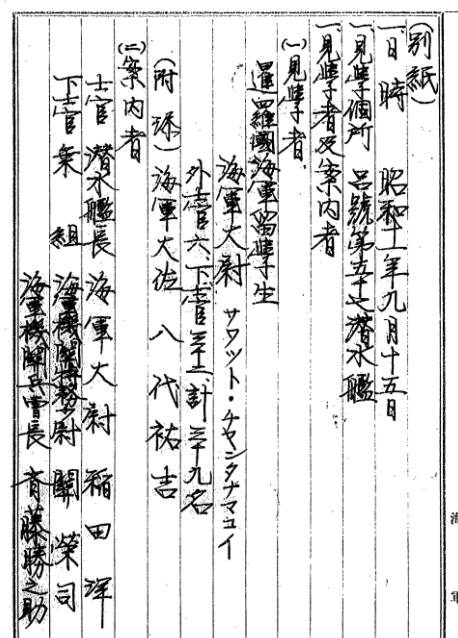 (別紙)
一、日時 昭和十一年九月十五日
一、見學個所 呂號第五十七潜水艦
一、見學者及案内者
(一)見學者
暹羅國海軍留學生
海軍大尉 サワット・チヤンタナマユイ
外士官六、下士官三十二、計三十九名
(附添)海軍大佐 八代祐吉
(二)案内者
士官 潜水艦長 海軍大尉 稲田洋
下士官 乗組 海軍機關特務少尉 關榮司
海軍機關兵曹長 斉藤勝之助
海軍